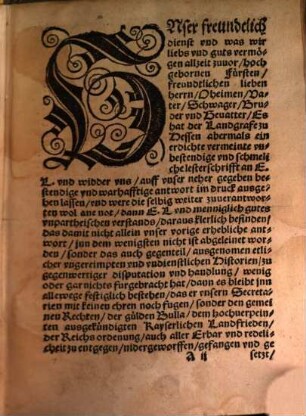 Nser freundtlich
dienst vnd was wir
liebs vnd guts vermö-
gen allzeit zuuor / hoch
gebornen Fürsten /
freundtlichen lieben
herrn / Oheimen / Va-
ter / Schwager / Bru-
der vnd Geuatter / Es
hat der Landgrafe zu
Hessen abermals ein
erdichte vermeinte vn-
bestendige vnd schmeh
che lesterschrifft an E.
L. vnd widder vns / auff vnser neher gegeben be-
stendige vnd warhafftige antwort im druck ausge-
hen lassen / vnd were die selbig weiter zuuerantwor-
ten wol ane not / dann E. L. vnd menniglich guts
vnpartheischen verstands / daraus klerlich befinden /
das damit nicht allein vnser vorige erhebliche ant-
wort / jnn dem wenigsten nicht ist abgeleinet wor-
den / sonder das auch gegenteil / ausgenomen etli-
cher vngereimpten vnd vndienstlichen Historien / zu
gegenwertiger disputation vnd handlung / wenig
oder gar nichts fürgebracht hat / dann es bleibt jnn
allewege festiglich bestehen / das er vnsern Secreta-
rien mit keinen ehren noch fugen / sonder den gemei
nen Rechten / der gülden Bulla / dem hochuerpein-
ten ausgekündigten Kayserlichen Landfrieden /
der Reichs ordenung / auch aller Erbar vnd redeli-
cheit zu entgegen / nidergeworffen / gefangen vnd ge
A ij setzt /